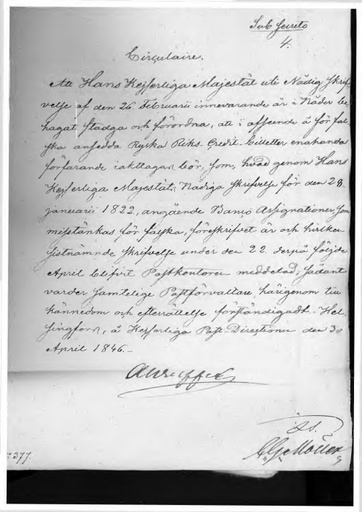 Sub Secreto
4.
Circulaire.
Att Hans Kejserliga Majestät uti Nådig Skrif-
velse af den 26 Februarii innevarande år i Nåder be-
hagat stadga och förordna, att i afseende å för fal-
ska ansedda Ryska Riks Credit Billetter enahanda
förfarande iakttagas bör, som, genom Hans
Kejserliga Majestäts Nådiga Skrifvelse för den 28
januarii 1822, angående Banco Assignationer, som
misstänkas för falska, föreskrifvet är och hvilken
sistnämnde Skrifvelse under den 22 derpå följde
April blifvit Postkontoren meddelad, sådant
varder samtelige Postförvaltare härigenom till
kännedom och efterrättelse förständigadt. Hel-
singfors, å Kejserliga Post Directionen den 30
April 1846.
377.